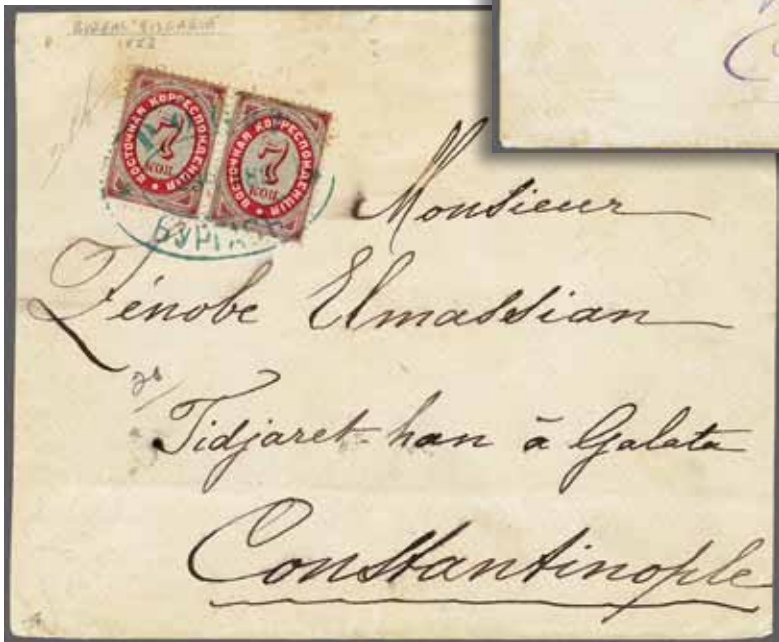 1882
ВОСТОЧНАЯ КОРРЕСПОНДЕНЦІЯ
7
КОП
ВОСТОЧНАЯ КОРРЕСПОНДЕНЦІЯ
7
КОП
БУРГАСЪ
Monsieur
Zénobe Elmassian
Tidjaret-han à Galata
Constantinople